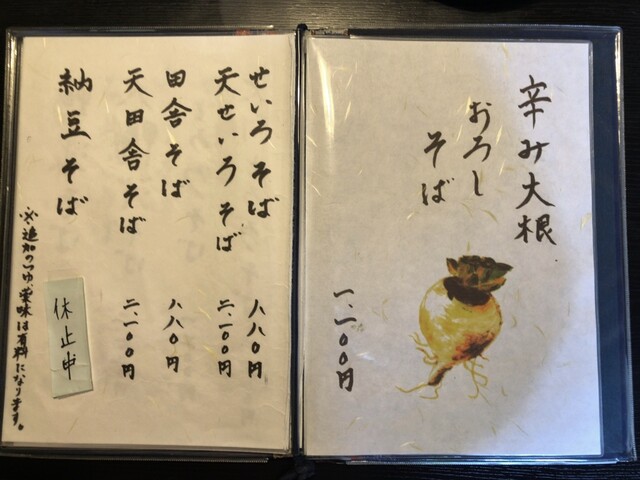 辛み大根
おろし
そば
一、一〇〇円
せいろそば 八八〇円
天せいろそば 二、一〇〇円
田舎そば 八八〇円
天田舎そば 二、一〇〇円
納豆そば 休止中
※追加のつゆ、薬味は有料になります。